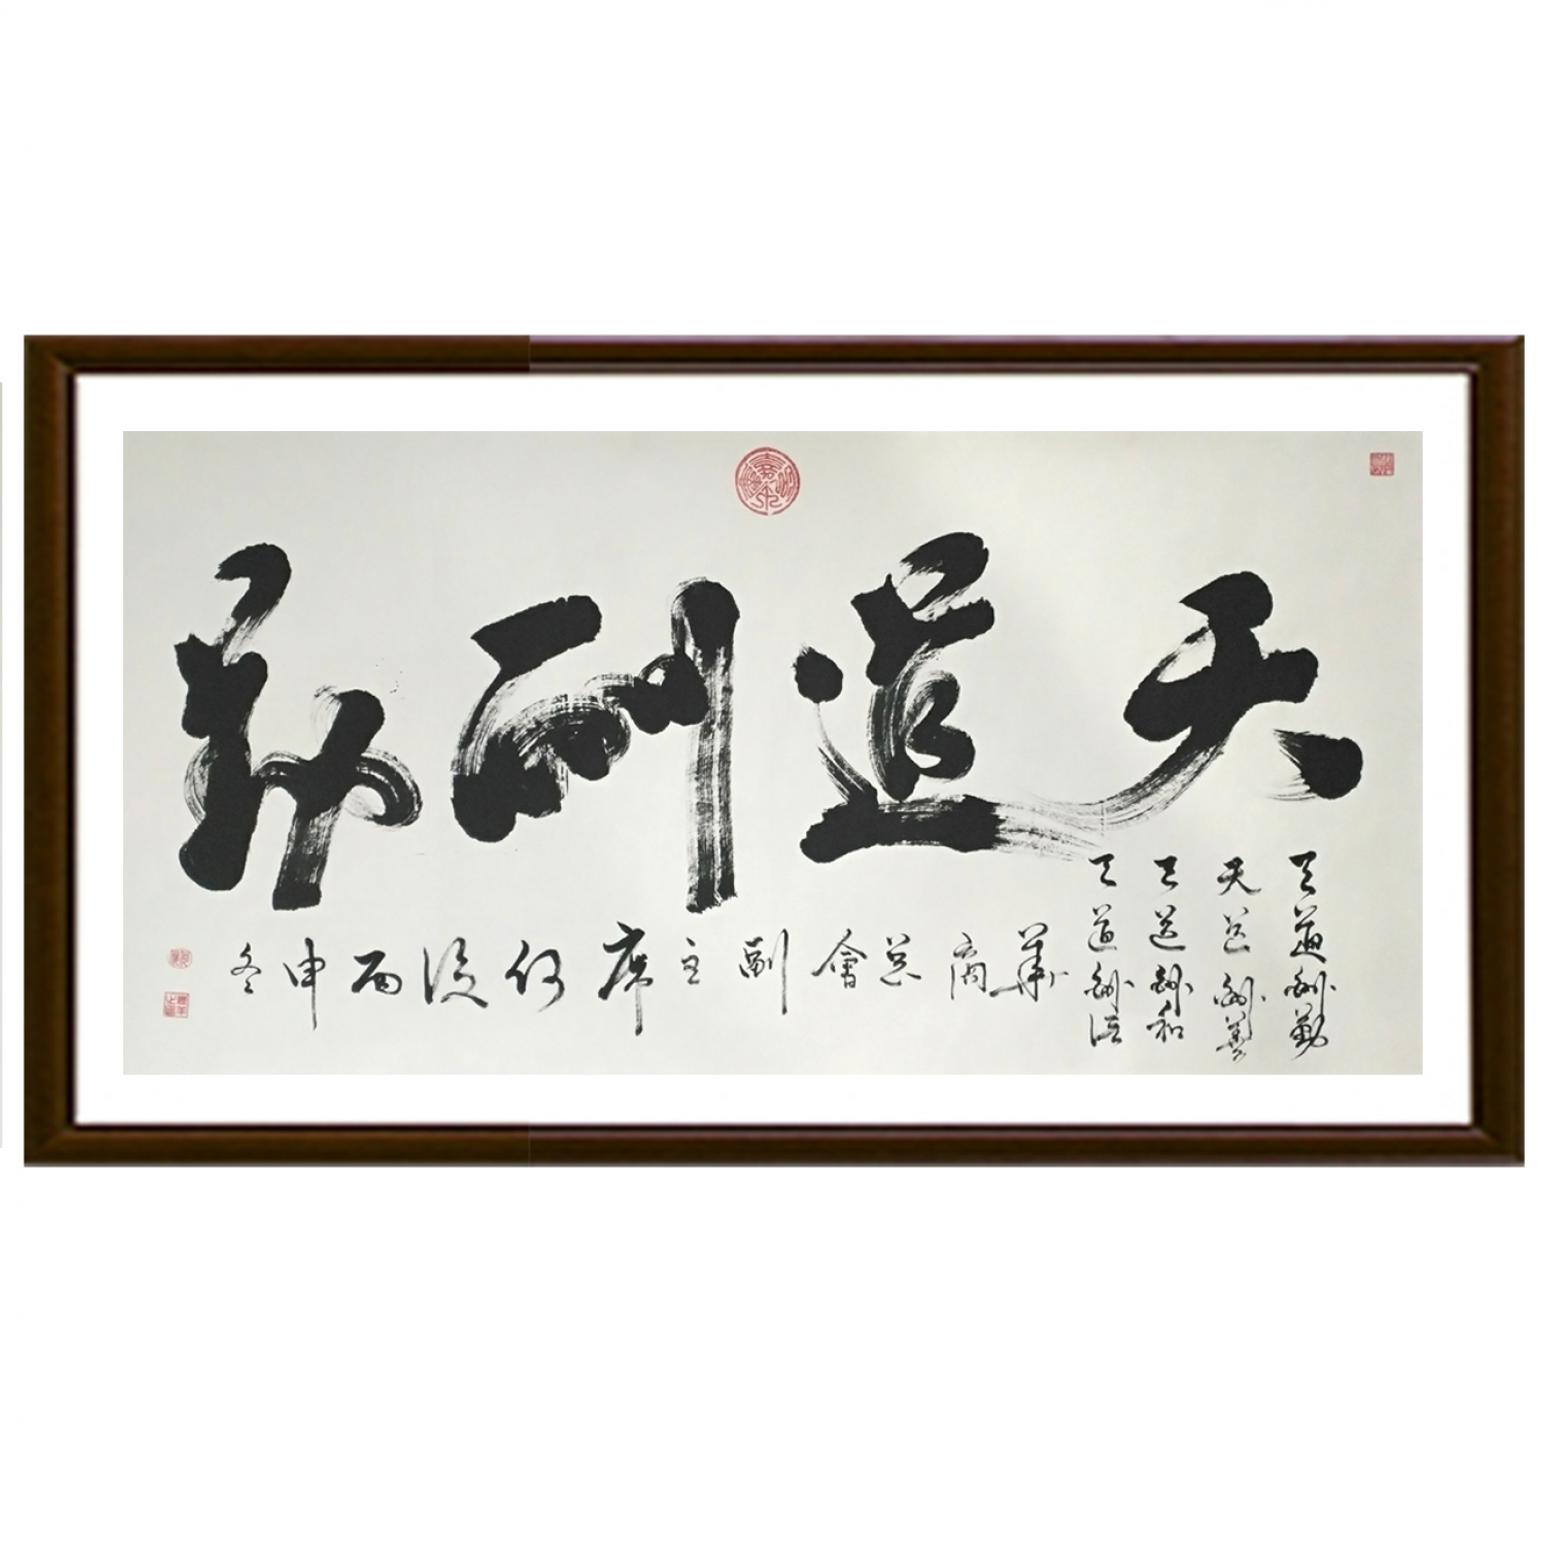 天道酬勤
天道酬勤
天道酬善
天道酬和
天道酬信
華商总會副主席何浚丙申冬